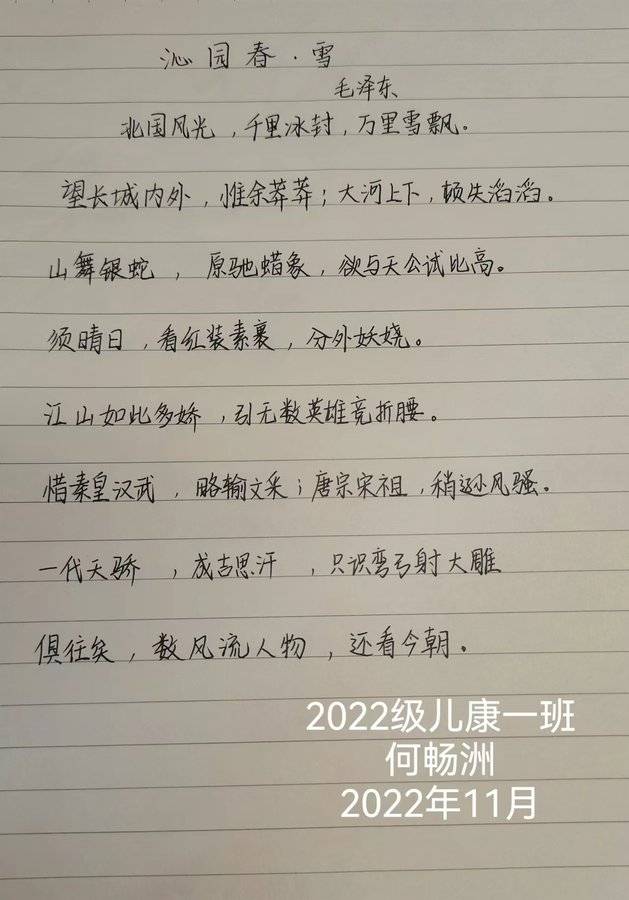 沁园春·雪
毛泽东
北国风光，千里冰封，万里雪飘。
望长城内外，惟余莽莽；大河上下，顿失滔滔。
山舞银蛇，原驰蜡象，欲与天公试比高。
须晴日，看红装素裹，分外妖娆。
江山如此多娇，引无数英雄竞折腰。
惜秦皇汉武，略输文采；唐宗宋祖，稍逊风骚。
一代天骄，成吉思汗，只识弯弓射大雕
俱往矣，数风流人物，还看今朝。
2022级儿康一班
何畅洲
2022年11月